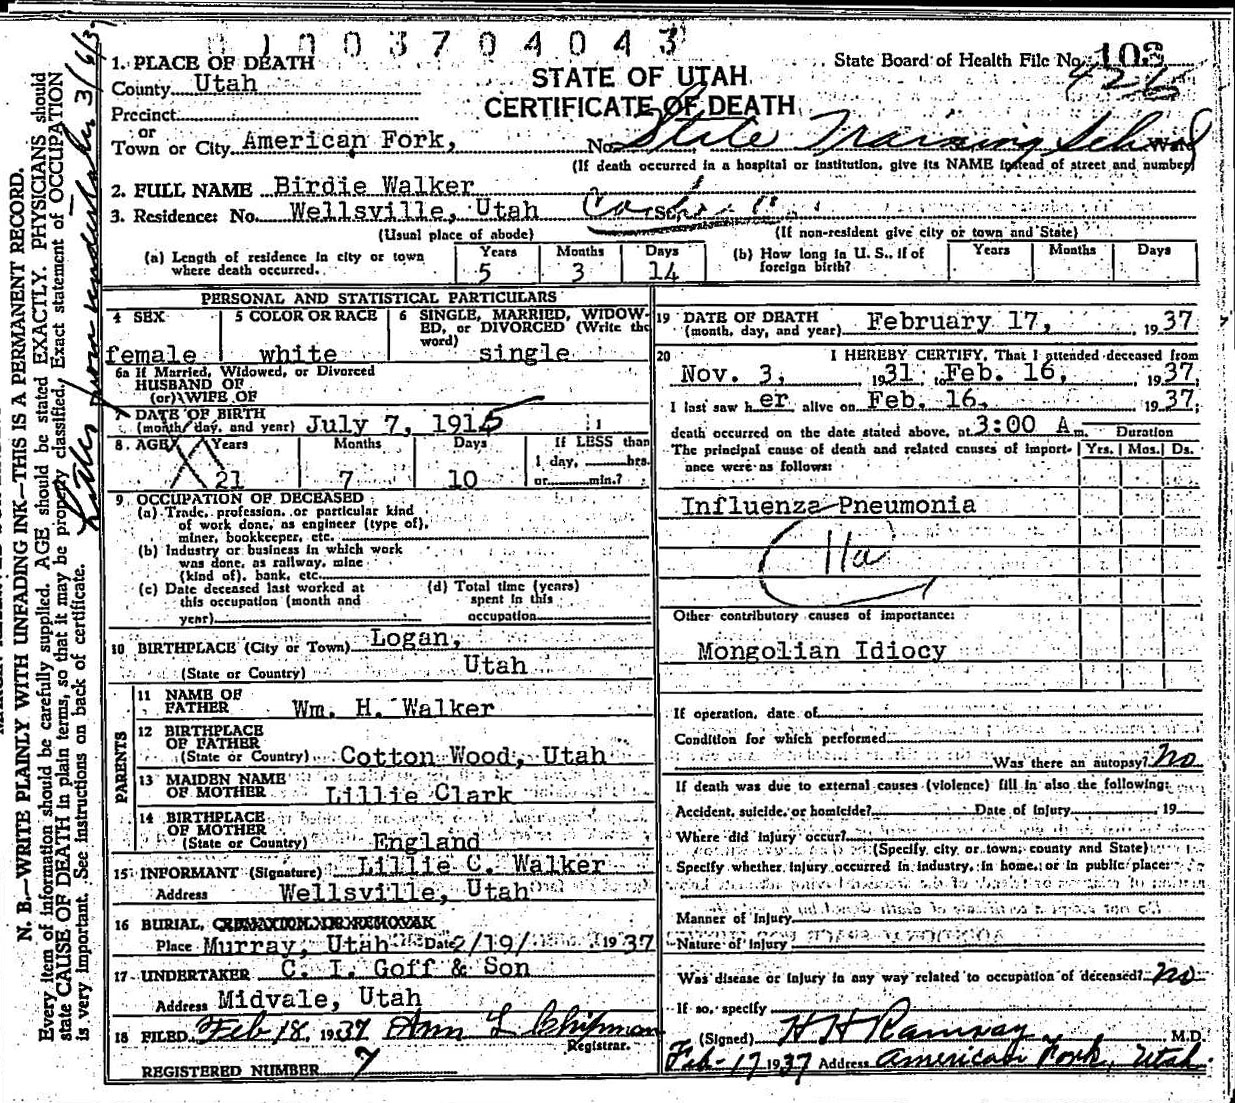 0 1 0 0 3 7 0 4 0 4 3
State Board of Health File No. 103
426
STATE OF UTAH
CERTIFICATE OF DEATH
1. PLACE OF DEATH
County Utah
Precinct
or
Town or City American Fork, No. State Training School Ward
(If death occurred in a hospital or institution, give its NAME instead of street and number)
2. FULL NAME Birdie Walker
3. Residence: No. Wellsville, Utah St.
(Usual place of abode) (If non-resident give city or town and State)
(a) Length of residence in city or town where death occurred. Years 5 Months 3 Days 14
(b) How long in U. S., if of foreign birth? Years Months Days
PERSONAL AND STATISTICAL PARTICULARS
4 SEX female
5 COLOR OR RACE white
6 SINGLE, MARRIED, WIDOWED, or DIVORCED (Write the word) single
6a If Married, Widowed, or Divorced
HUSBAND OF
(or) WIFE OF
7 DATE OF BIRTH
(month, day, and year) July 7, 1915
8. AGE Years 21 Months 7 Days 10 If LESS than 1 day, hrs. or min.?
9. OCCUPATION OF DECEASED
(a) Trade, profession, or particular kind
of work done, as engineer (type of),
miner, bookkeeper, etc.
(b) Industry or business in which work
was done, as railway, mine
(kind of), bank, etc.
(c) Date deceased last worked at
this occupation (month and
year)
(d) Total time (years)
spent in this
occupation
10 BIRTHPLACE (City or Town) Logan,
(State or Country) Utah
PARENTS
11 NAME OF
FATHER Wm. H. Walker
12 BIRTHPLACE
OF FATHER
(State or Country) Cotton Wood, Utah
13 MAIDEN NAME
OF MOTHER Lillie Clark
14 BIRTHPLACE
OF MOTHER
(State or Country) England
15 INFORMANT (Signature) Lillie C. Walker
Address Wellsville, Utah
16 BURIAL, CREMATION OR REMOVAL
Place Murray, Utah Date 2/19/ 1937
17 UNDERTAKER C. I. Goff & Son
Address Midvale, Utah
18 FILED Feb 18, 1937 Ann L Chipman
Registrar.
REGISTERED NUMBER 7
19 DATE OF DEATH
(month, day, and year) February 17, 1937
20 I HEREBY CERTIFY, That I attended deceased from
Nov. 3, 1931 to Feb. 16, 1937
I last saw her alive on Feb. 16, 1937
death occurred on the date stated above, at 3:00 A m. Duration
The principal cause of death and related causes of importance were as follows: Yrs. Mos. Ds.
Influenza Pneumonia
11a
Other contributory causes of importance:
Mongolian Idiocy
If operation, date of
Condition for which performed
Was there an autopsy? no
If death was due to external causes (violence) fill in also the following:
Accident, suicide, or homicide? Date of injury 19
Where did injury occur?
(Specify city or town, county and State)
Specify whether injury occurred in industry, in home, or in public place:
Manner of Injury
Nature of injury
Was disease or injury in any way related to occupation of deceased? no
If so, specify
(Signed) H H Ramsay M.D.
Feb-17 1937 Address American Fork, Utah
N. B.—WRITE PLAINLY WITH UNFADING INK—THIS IS A PERMANENT RECORD.
Every item of information should be carefully supplied. AGE should be stated EXACTLY. PHYSICIANS should
state CAUSE OF DEATH in plain terms, so that it may be properly classified. Exact statement of OCCUPATION
is very important. See instructions on back of certificate.
Letter from undertaker 3/6/37